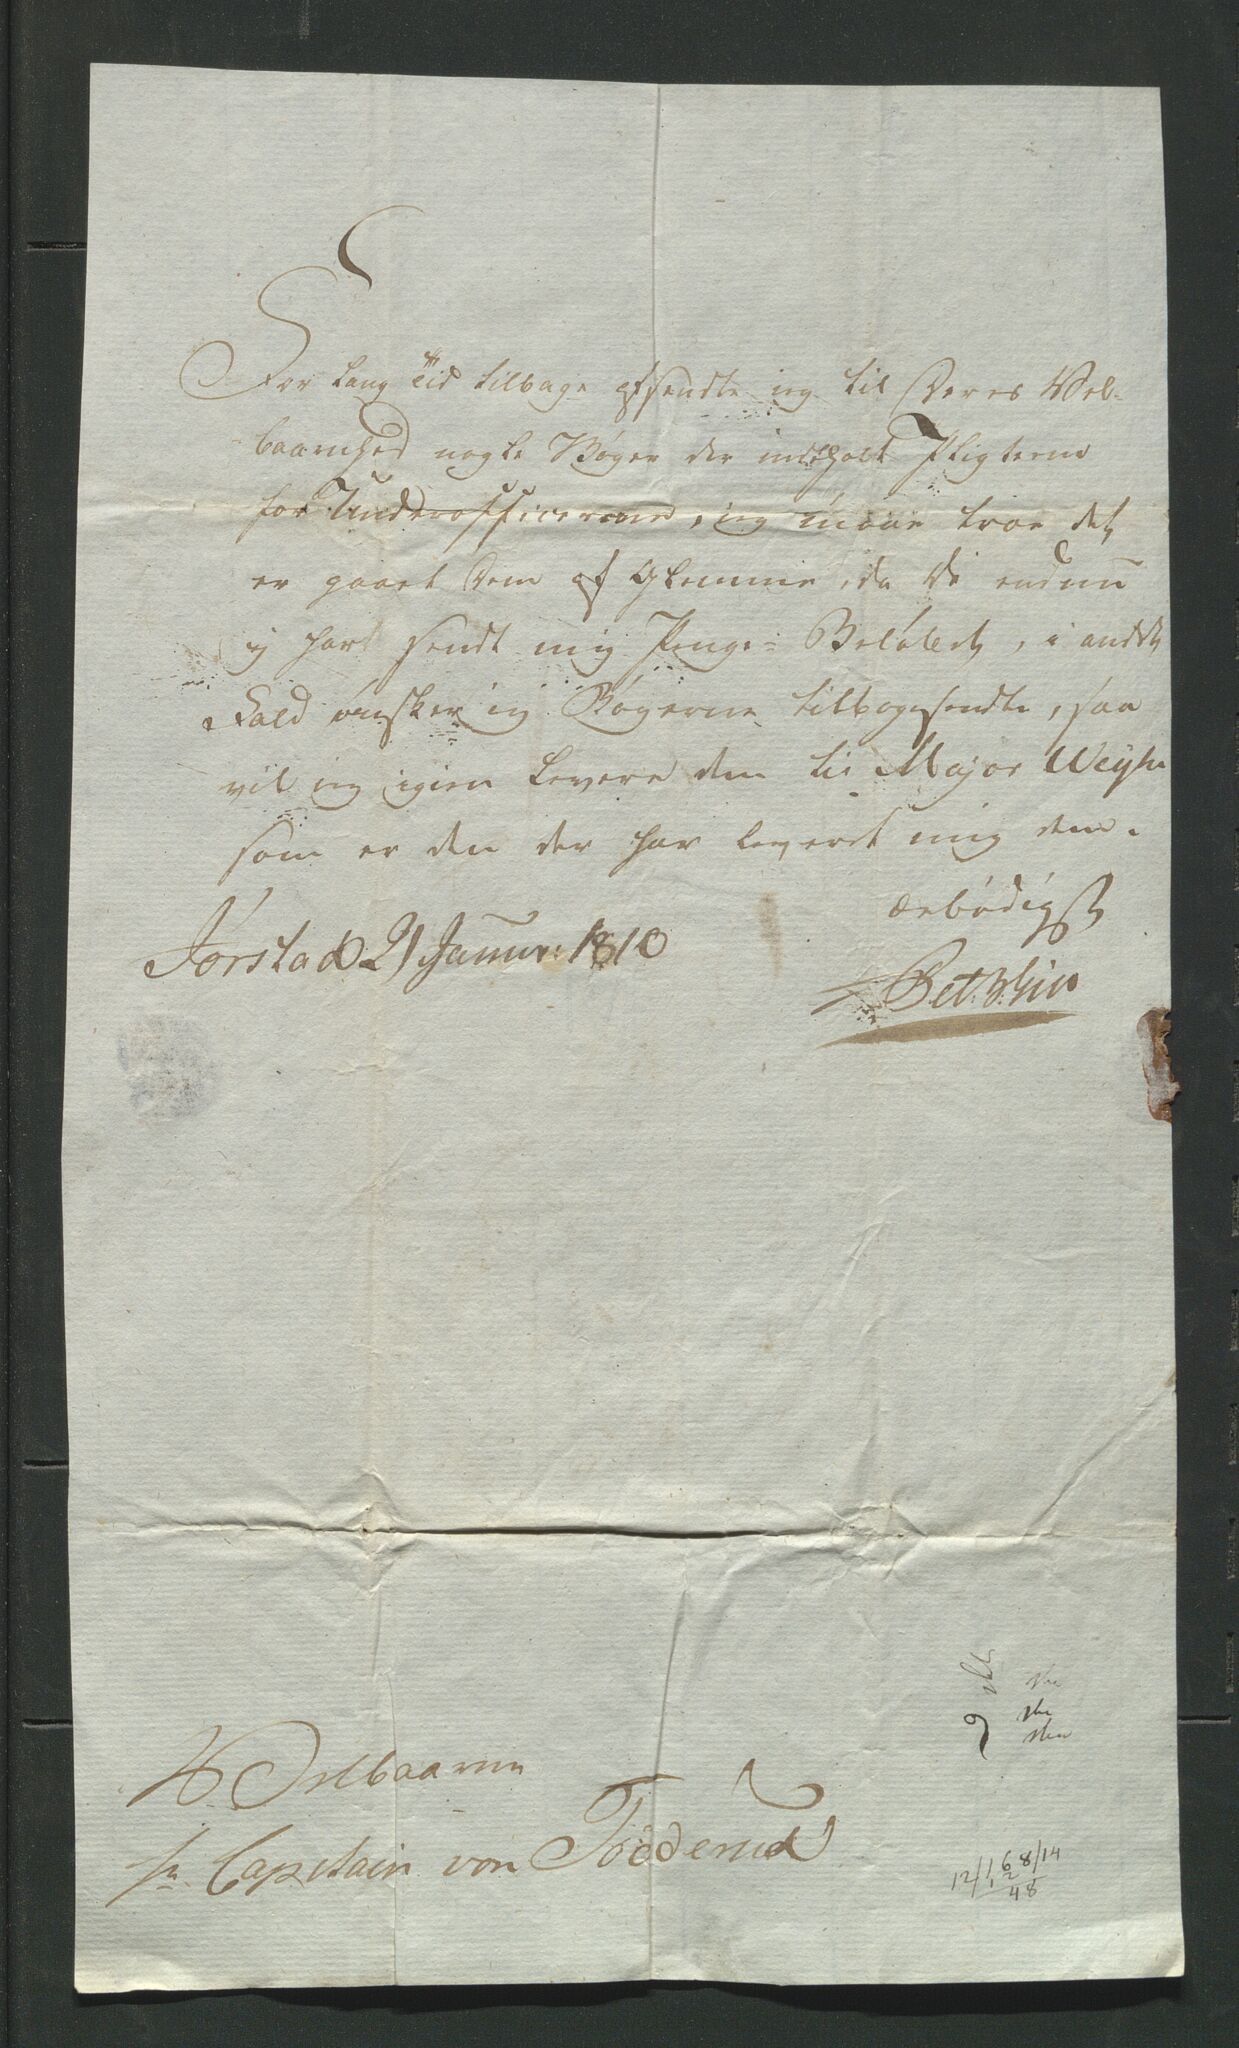 For lang Tid tilbage afsendte jeg til Deres Vel-
baarnhed nogle Bøger der indeholt Pligterne
for Underofficererne, jeg maae troe det
er gaaet Dem af Glemme, da De endnu
ej har sendt mig Penge-Beløbet, i andet
Fald ønsker jeg Bøgerne tilbagesendte, saa
vil jeg igien levere dem til Major Weyhe
som er den der har leveret mig dem.
ærbødigst
Jørstad d 21 Januar: 1810
Velbaarne
Hr Capitain von Frøderud
12/168/14
48